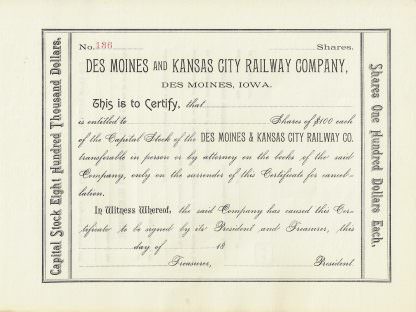 Capital Stock Eight Hundred Thousand Dollars.
No. 136 Shares.
DES MOINES AND KANSAS CITY RAILWAY COMPANY,
DES MOINES, IOWA.
This is to Certify, that
is entitled to Shares of $100 each
of the Capital Stock of the DES MOINES & KANSAS CITY RAILWAY CO.
transferable in person or by attorney on the books of the said
Company, only on the surrender of this Certificate for cancel-
lation.
In Witness Whereof, the said Company has caused this Cer-
tificate to be signed by its President and Treasurer, this
day of 18
Treasurer, President.
Shares One Hundred Dollars Each.